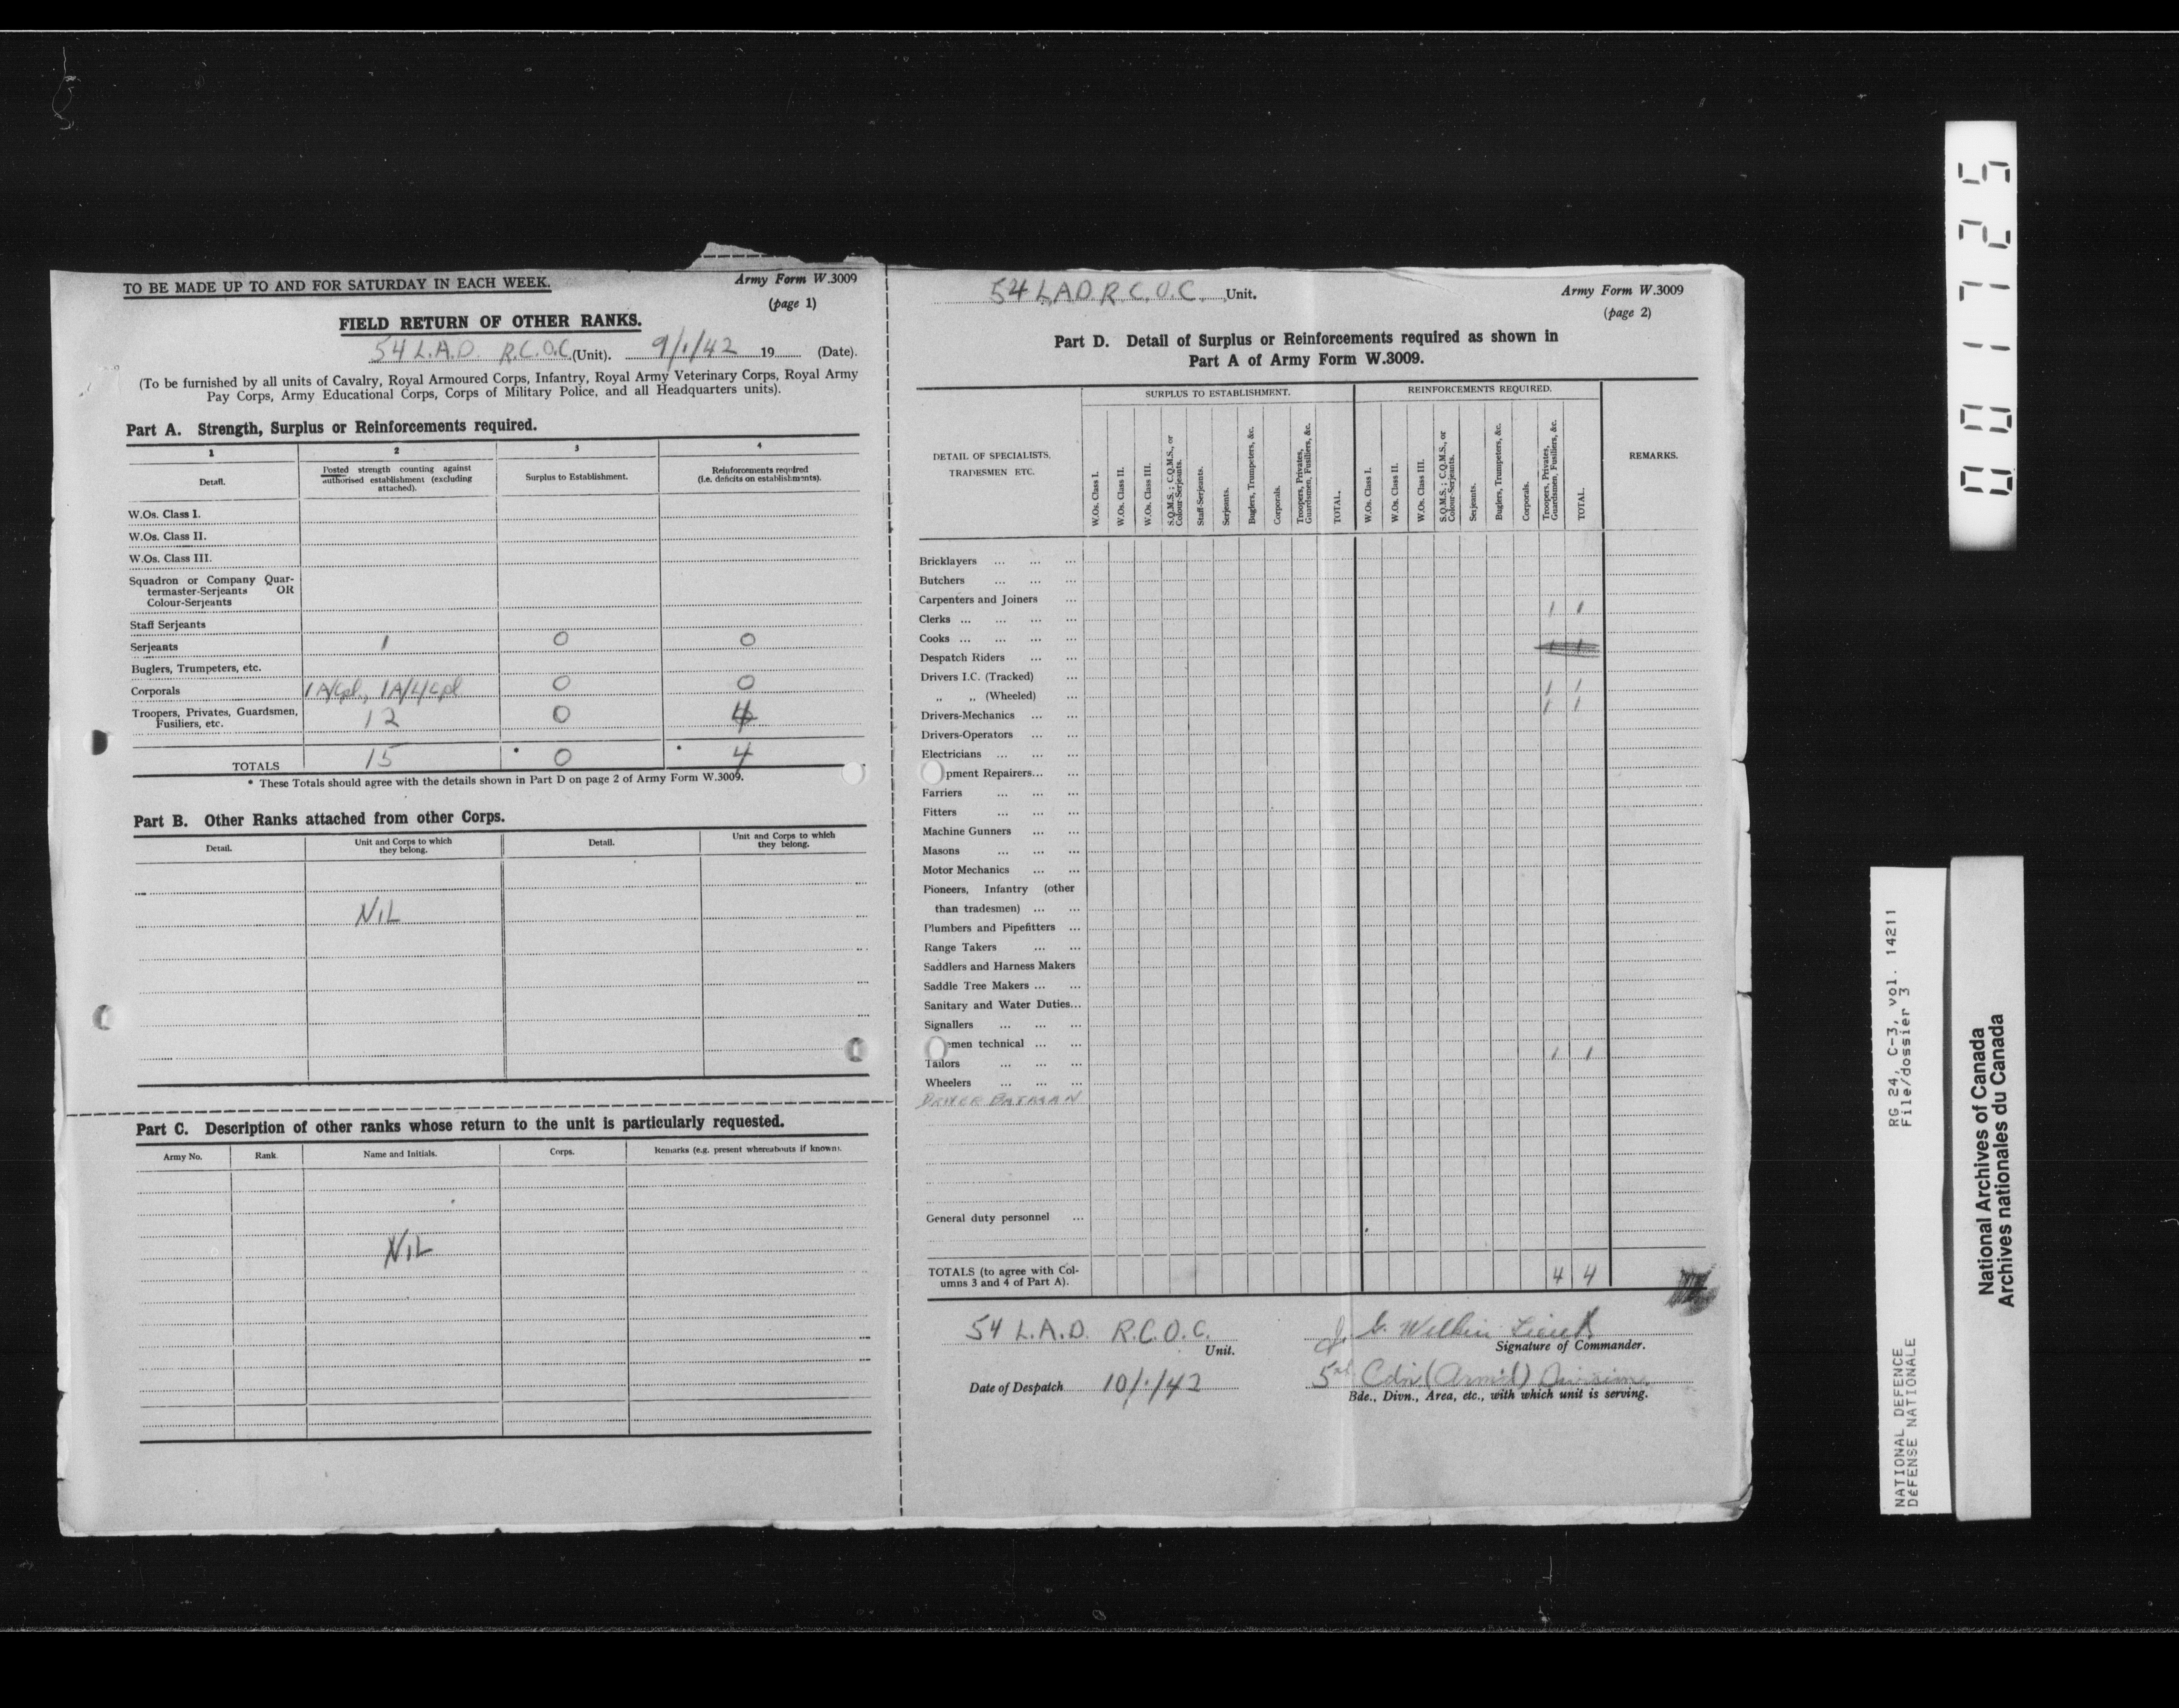 TO BE MADE UP TO AND FOR SATURDAY IN EACH WEEK.
Army Form W.3009
(page 1)
FIELD RETURN OF OTHER RANKS.
54 L.A.D. R.C.O.C. (Unit). 9/1/42 19 (Date).
(To be furnished by all units of Cavalry, Royal Armoured Corps, Infantry, Royal Army Veterinary Corps, Royal Army
Pay Corps, Army Educational Corps, Corps of Military Police, and all Headquarters units).
Part A. Strength, Surplus or Reinforcements required.
1 2 3 4
Detail. Posted strength counting against authorised establishment (excluding attached). Surplus to Establishment. Reinforcements required (i.e. deficits on establishments).
W.Os. Class I.
W.Os. Class II.
W.Os. Class III.
Squadron or Company Quar-
termaster-Serjeants OR
Colour-Serjeants
Staff Serjeants
Serjeants 1 0 0
Buglers, Trumpeters, etc.
Corporals 1 A/Cpl, 1 A/L/Cpl 0 0
Troopers, Privates, Guardsmen,
Fusiliers, etc. 12 0 4
TOTALS 15 * 0 * 4
* These Totals should agree with the details shown in Part D on page 2 of Army Form W.3009.
Part B. Other Ranks attached from other Corps.
Detail. Unit and Corps to which they belong. Detail. Unit and Corps to which they belong.
NIL
Part C. Description of other ranks whose return to the unit is particularly requested.
Army No. Rank. Name and Initials. Corps. Remarks (e.g. present whereabouts if known).
NIL
54 L.A.D. R.C.O.C. Unit.
Army Form W.3009
(page 2)
Part D. Detail of Surplus or Reinforcements required as shown in
Part A of Army Form W.3009.
DETAIL OF SPECIALISTS, TRADESMEN ETC.
SURPLUS TO ESTABLISHMENT.
REINFORCEMENTS REQUIRED.
REMARKS.
W.Os. Class I.
W.Os. Class II.
W.Os. Class III.
S.Q.M.S.; C.Q.M.S., or Colour-Serjeants.
Staff-Serjeants.
Serjeants.
Buglers, Trumpeters, &c.
Corporals.
Troopers, Privates, Guardsmen, Fusiliers, &c.
TOTAL.
W.Os. Class I.
W.Os. Class II.
W.Os. Class III.
S.Q.M.S.; C.Q.M.S., or Colour-Serjeants.
Serjeants.
Buglers, Trumpeters, &c.
Corporals.
Troopers, Privates, Guardsmen, Fusiliers, &c.
TOTAL.
Bricklayers ... ... ...
Butchers ... ... ...
Carpenters and Joiners ...
Clerks ... ... ... ... 1 1
Cooks ... ... ... ...
Despatch Riders ... ... 1 1
Drivers I.C. (Tracked) ...
„ „ (Wheeled) ... 1 1
Drivers-Mechanics ... ... 1 1
Drivers-Operators ... ...
Electricians ... ... ...
pment Repairers... ...
Farriers ... ... ...
Fitters ... ... ...
Machine Gunners ... ...
Masons ... ... ...
Motor Mechanics ... ...
Pioneers, Infantry (other
than tradesmen) ... ...
Plumbers and Pipefitters ...
Range Takers ... ...
Saddlers and Harness Makers
Saddle Tree Makers ... ...
Sanitary and Water Duties...
Signallers ... ... ...
emen technical ... ...
Tailors ... ... ... 1 1
Wheelers ... ... ...
DRIVER BATMAN
General duty personnel ...
TOTALS (to agree with Col-
umns 3 and 4 of Part A). 4 4
54 L.A.D. R.C.O.C.
Unit.
Lieut
Signature of Commander.
Date of Despatch 10/1/42
5th Cdn (Armd) Division
Bde., Divn., Area, etc., with which unit is serving.
001725
RG 24, C-3, vol. 14211
File/dossier 3
NATIONAL DEFENCE
DÉFENSE NATIONALE
National Archives of Canada
Archives nationales du Canada